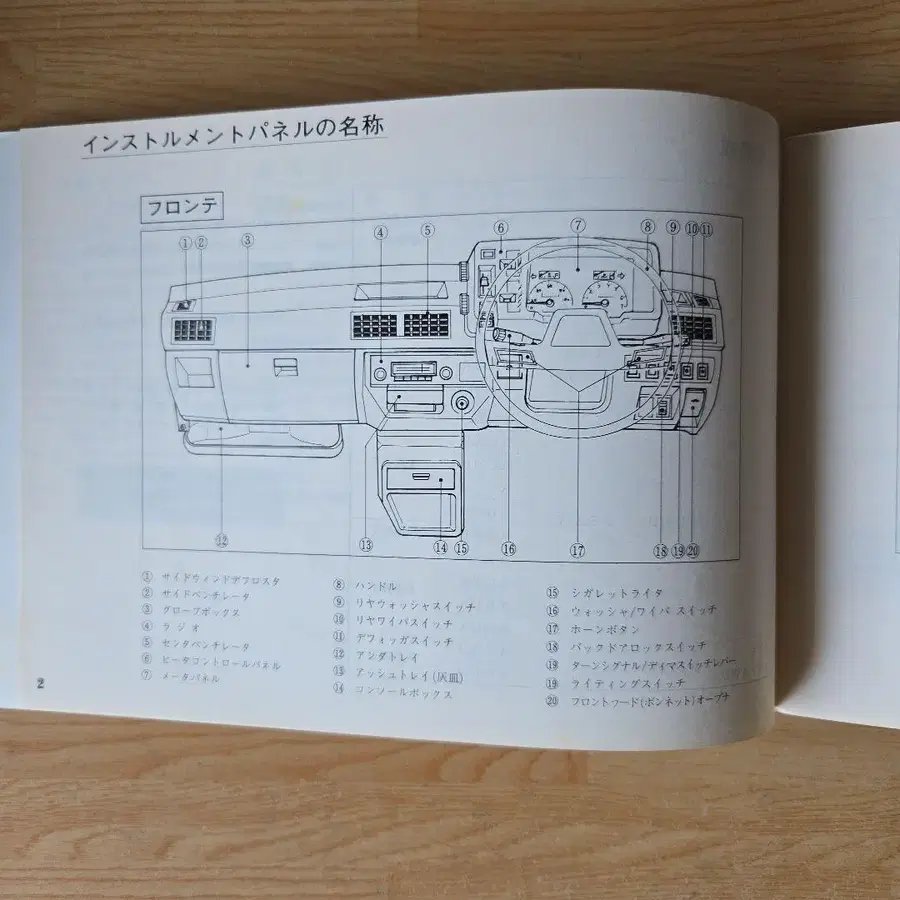 インストルメントパネルの名称
フロンテ
① ② ③ ④ ⑤ ⑥ ⑦ ⑧ ⑨ ⑩ ⑪
⑫ ⑬ ⑭ ⑮ ⑯ ⑰ ⑱ ⑲ ⑳
① サイドウィンドデフロスタ
② サイドベンチレータ
③ グローブボックス
④ ラジオ
⑤ センタベンチレータ
⑥ ヒータコントロールパネル
⑦ メータパネル
⑧ ハンドル
⑨ リヤウォッシャスイッチ
⑩ リヤワイパスイッチ
⑪ デフォッガスイッチ
⑫ アンダトレイ
⑬ アッシュトレイ(灰皿)
⑭ コンソールボックス
⑮ シガレットライタ
⑯ ウォッシャ/ワイパ スイッチ
⑰ ホーンボタン
⑱ バックドアロックスイッチ
⑲ ターンシグナル/ディマスイッチレバー
⑲ ライティングスイッチ
⑳ フロントフード(ボンネット)オープナ
2